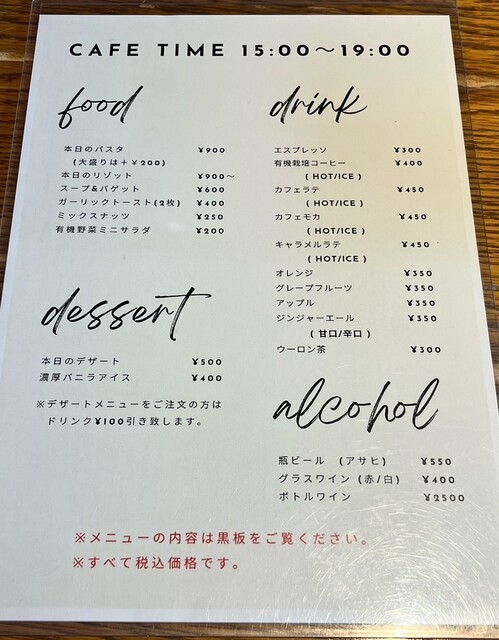 CAFE TIME 15:00〜19:00
food
本日のパスタ ¥900
(大盛りは＋¥200)
本日のリゾット ¥900〜
スープ&バゲット ¥600
ガーリックトースト(2枚) ¥400
ミックスナッツ ¥250
有機野菜ミニサラダ ¥200
dessert
本日のデザート ¥500
濃厚バニラアイス ¥400
※デザートメニューをご注文の方は
ドリンク¥100引き致します。
drink
エスプレッソ ¥300
有機栽培コーヒー ¥400
( HOT/ICE )
カフェラテ ¥450
( HOT/ICE )
カフェモカ ¥450
( HOT/ICE )
キャラメルラテ ¥450
( HOT/ICE )
オレンジ ¥350
グレープフルーツ ¥350
アップル ¥350
ジンジャーエール ¥350
( 甘口/辛口 )
ウーロン茶 ¥300
alcohol
瓶ビール (アサヒ) ¥550
グラスワイン (赤/白) ¥400
ボトルワイン ¥2500
※メニューの内容は黒板をご覧ください。
※すべて税込価格です。